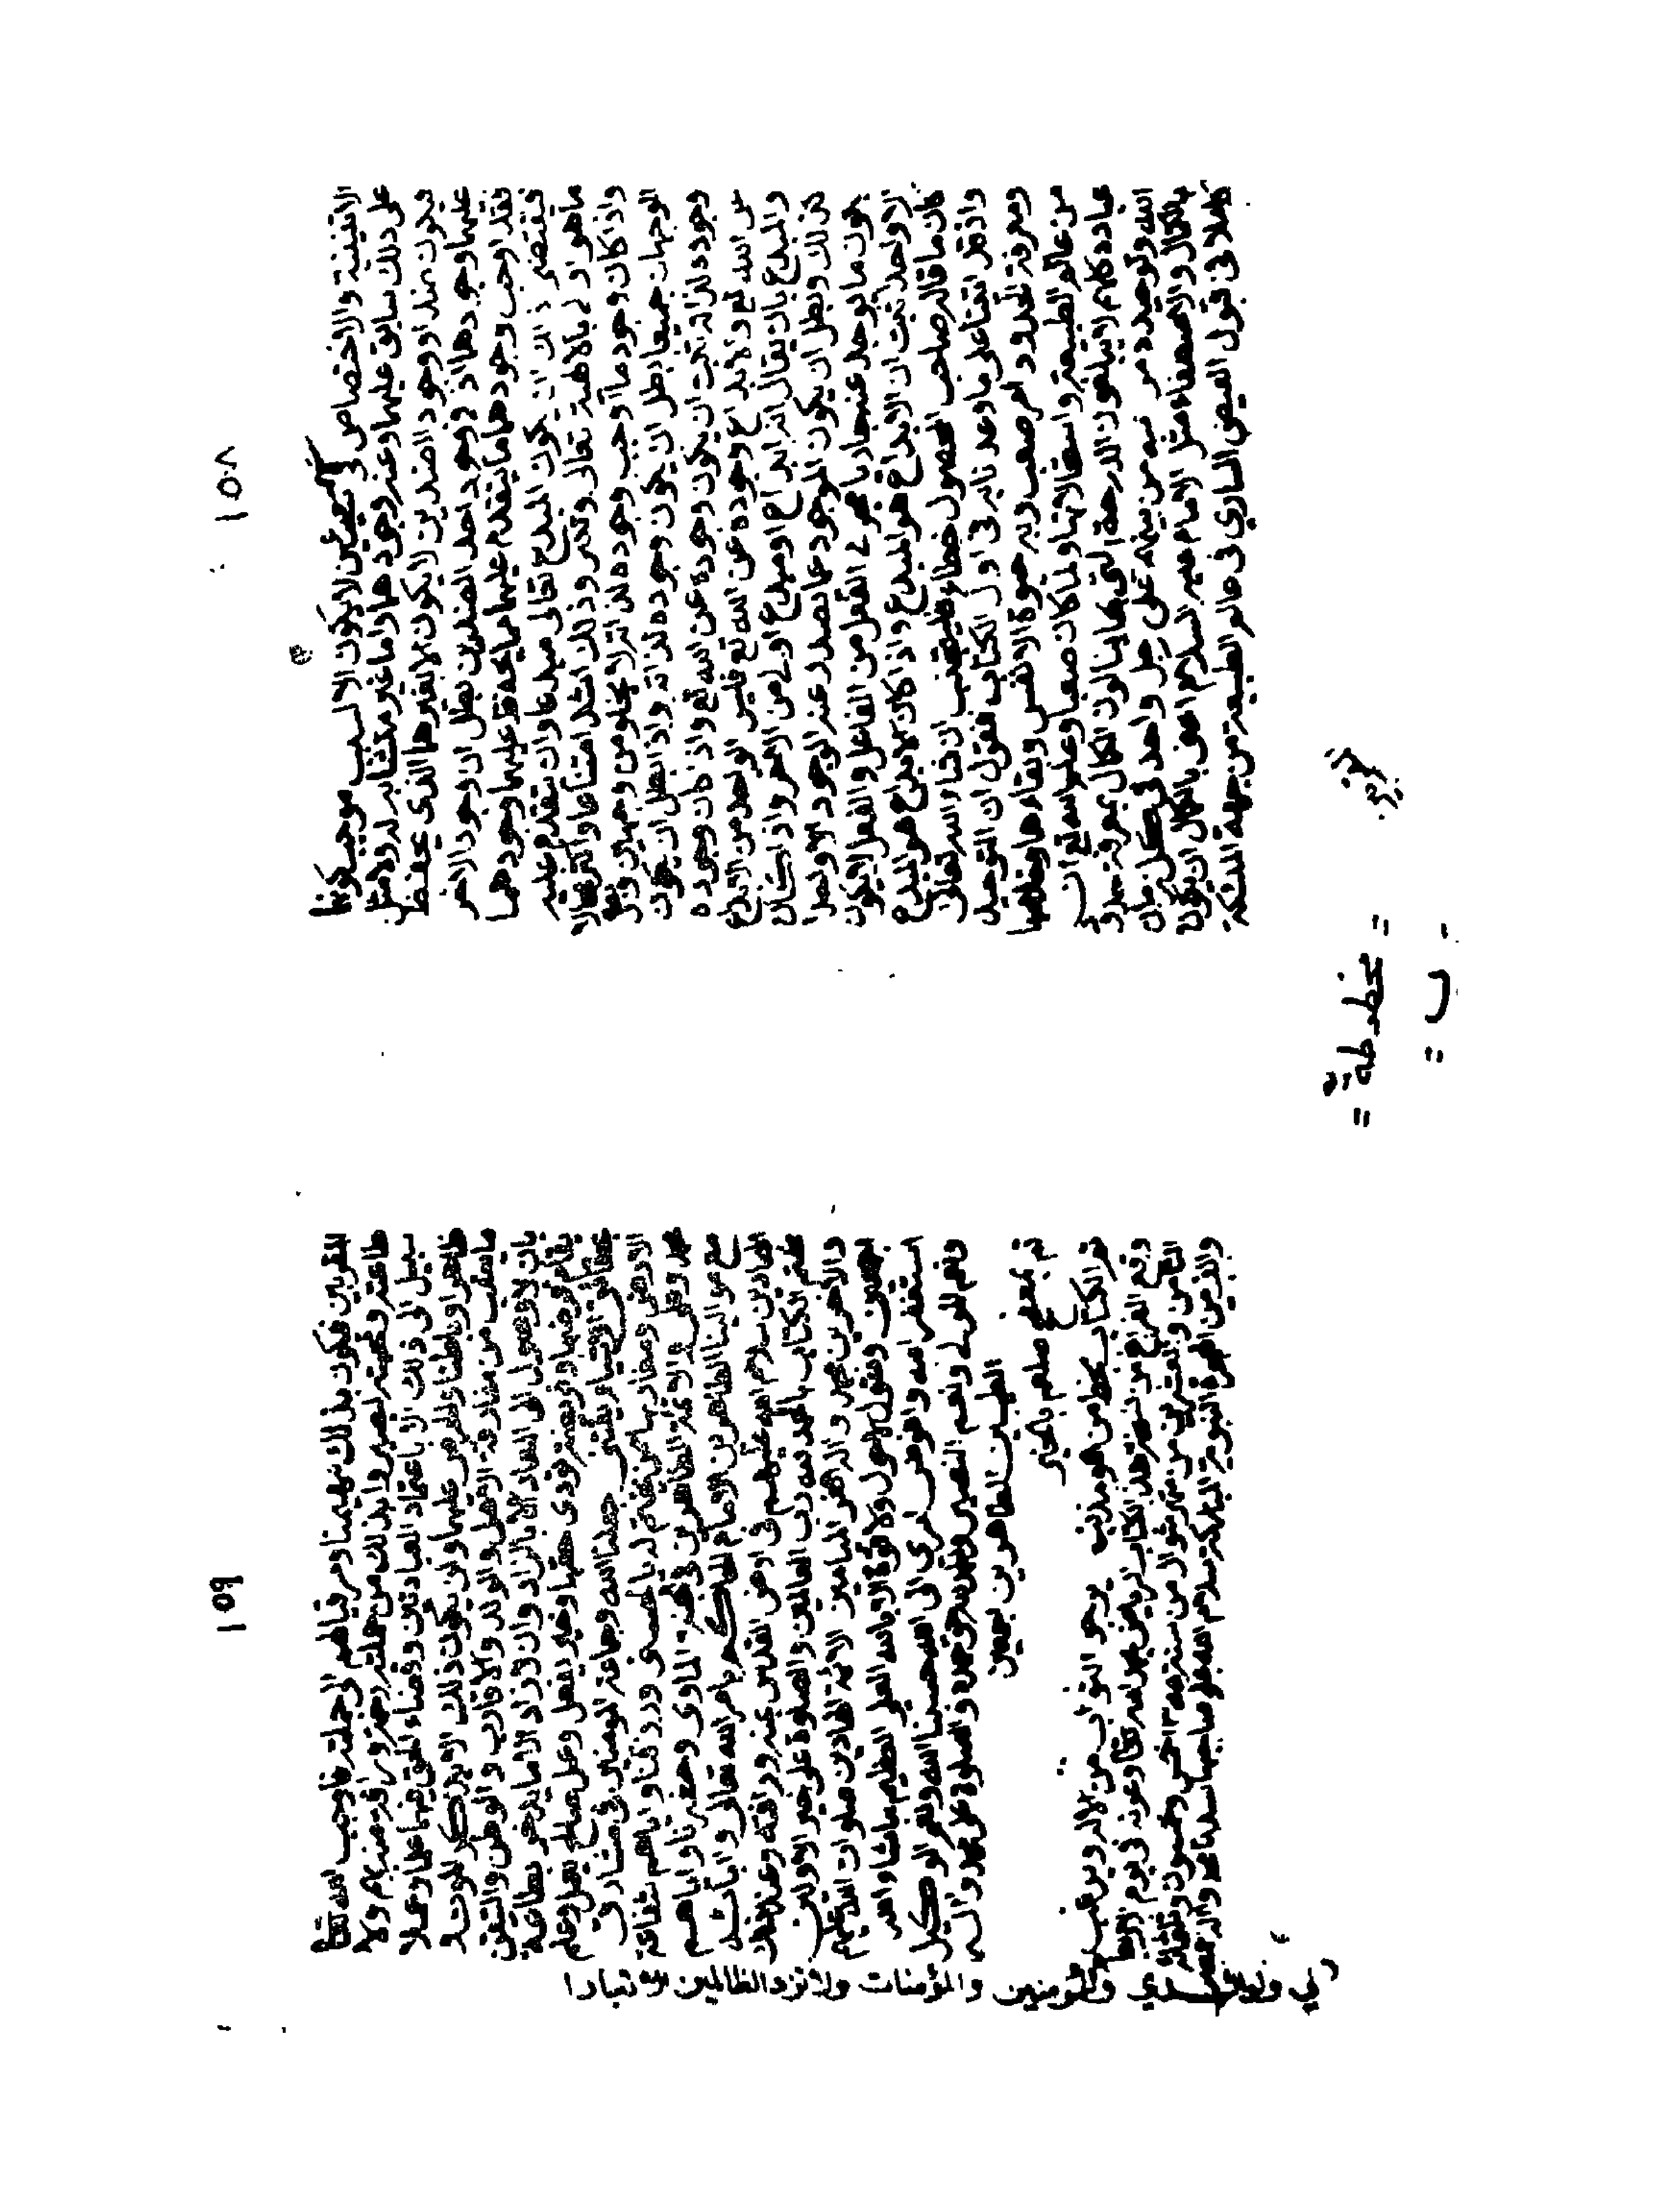 ١٥٨
الاثنينية والاختصاص في شيئين لا يكون الا لسبب موجب كونها
على ذلك سابق عليهما وعند وجودهما اما غير
فيكون ضدا ووجود الضدين لا يكون الا بغيرهما الذي يحفظ
عليهما وجودهما اذ وجود احد الضدين بطلان وجود الاخر
فقد اوجب وجودهما ما يتقدم عليهما ما يحفظ عليهما وجودهما
فيقتضي ذلك ان يكون المبدع تعالى مبدعا وان يتقدم عليه
ما هو اولى بالالاهية تعالى وتكبر وذلك اشد امتناعا واكثر محالا
واذا كان وجود ما وجب وجوده لذاته لا يخلو من وجهين وبطل
الوجهان جميعا بطل ان يكون وجوده لذاته واذا بطل ان يكون
وجوده لذاته ثبت ان يكون وجوده عن الله تع واذ كان وجوده
عن الله تع ولابداع وجوده عن الله تع فليس الواحد من الابداع
والمبدع بان يقال انه ابداع او مبدع اولى من الاخر واذا كان
كذلك وبطل ان يكون الموجود عما تصدر عنه الوجود الاول مما
يكون ما يوجد عنه جاريا مجرى الفعل من الفاعل والفعل لا يكون
الا واحدا ثبت ان الابداع هو المبدع واذا كان الابداع هو المبدع
كان ما قاله صاحب المحصول خطاء فليجتنب ان شاء الله تعالى
واذ قد اتينا على ما وعدنا به في اول الكتاب فنقول ان التوحيد
ومعرفة الحدود امر صعب وبه حيوة الانفس وبقاءها وخلاصها
من عالم الطبيعة واستحالاتها ولما كان صعبا وعلم الله تع ان
عباده كلهم لا يبلغون الدرجة التي بها ينالون الكمال بمعرفة حدود
الله وتوحيده من نبيه على رجل واحد في كل زمان
بالكمال والاصطفاء مثل الامام عليه السلام اعني بالكمال ان يكون
كاملا في قبول الفيض الساري في عالم الطبيعة من جهة الملئكة
= مخطوطة =
= ب -
١٥٩
المقربين فيكون بذلك مهيمنا ومرقيا لهم الى جملته فاوجب الله تعا
طاعته ومحبته ليصيروا بذلك من جملته رحمة ورافة منه بهم ولا
سبيل الى ذلك الا باعتماد العبادتين وقضاء الحق فيهما علما وعملا
ظاهرا وباطنا والحرص عليهما ولن يكون ذلك الا بذكر الموت
ما يعقب من مفارقة الاهل والولد والاقارب والوطن والتيقن
بان لا وصول الى المعاد الا بالزاد وان لا زاد الا ما يدخر بطاعة
يقام فرضها تؤدى حقها وخير يفعل وعمل صالح يعمل وعلم
بحقائق الاشياء يقتنى جعلنا الله وجماعة المومنين في مشارق
الارض ومغاربها من يختم له بالحسنى ورزقنا واياهم شفاعة
محمد وعلي والائمة الطاهرين في جنة الماوى وحشرنا واياهم
مع موالينا الطاهرين الامام الحاكم بامر الله تعالى وابائه
الهادين سلام الله عليهم في ارض القدس ورافة وعند هذا
نختم الكتاب بالحمد لله رب العالمين والصلوة على خير الاولين
والاخرين محمد واله الغر الميامين الائمة الهادين صلوات الله عليهم
اجمعين ونقول لا حول ولا قوة الا بالله العلي العظيم ما شاء الله
استغفر الله وافوض امري الى الله حسبنا الله ونعم الوكيل
ونعم المولى ونعم النصير والحمد لله وحده والصلوة على محمد واله
الطيبين الطاهرين اجمعين
تم صلعم بالخير
تم الكتاب بخط من هو مذنب يرجو الثواب من الاله ويرغب
وقع الفراغ من نسخ هذا الكتاب بعون الله تعا وعونه في يوم
الثامن والعشرين من شهر شوال من سنة خمس وخمسون وثلثمائة والف
والف من الهجرة النبوية
والمؤمنين والمؤمنات ولا تزد الظالمين الا تبارا